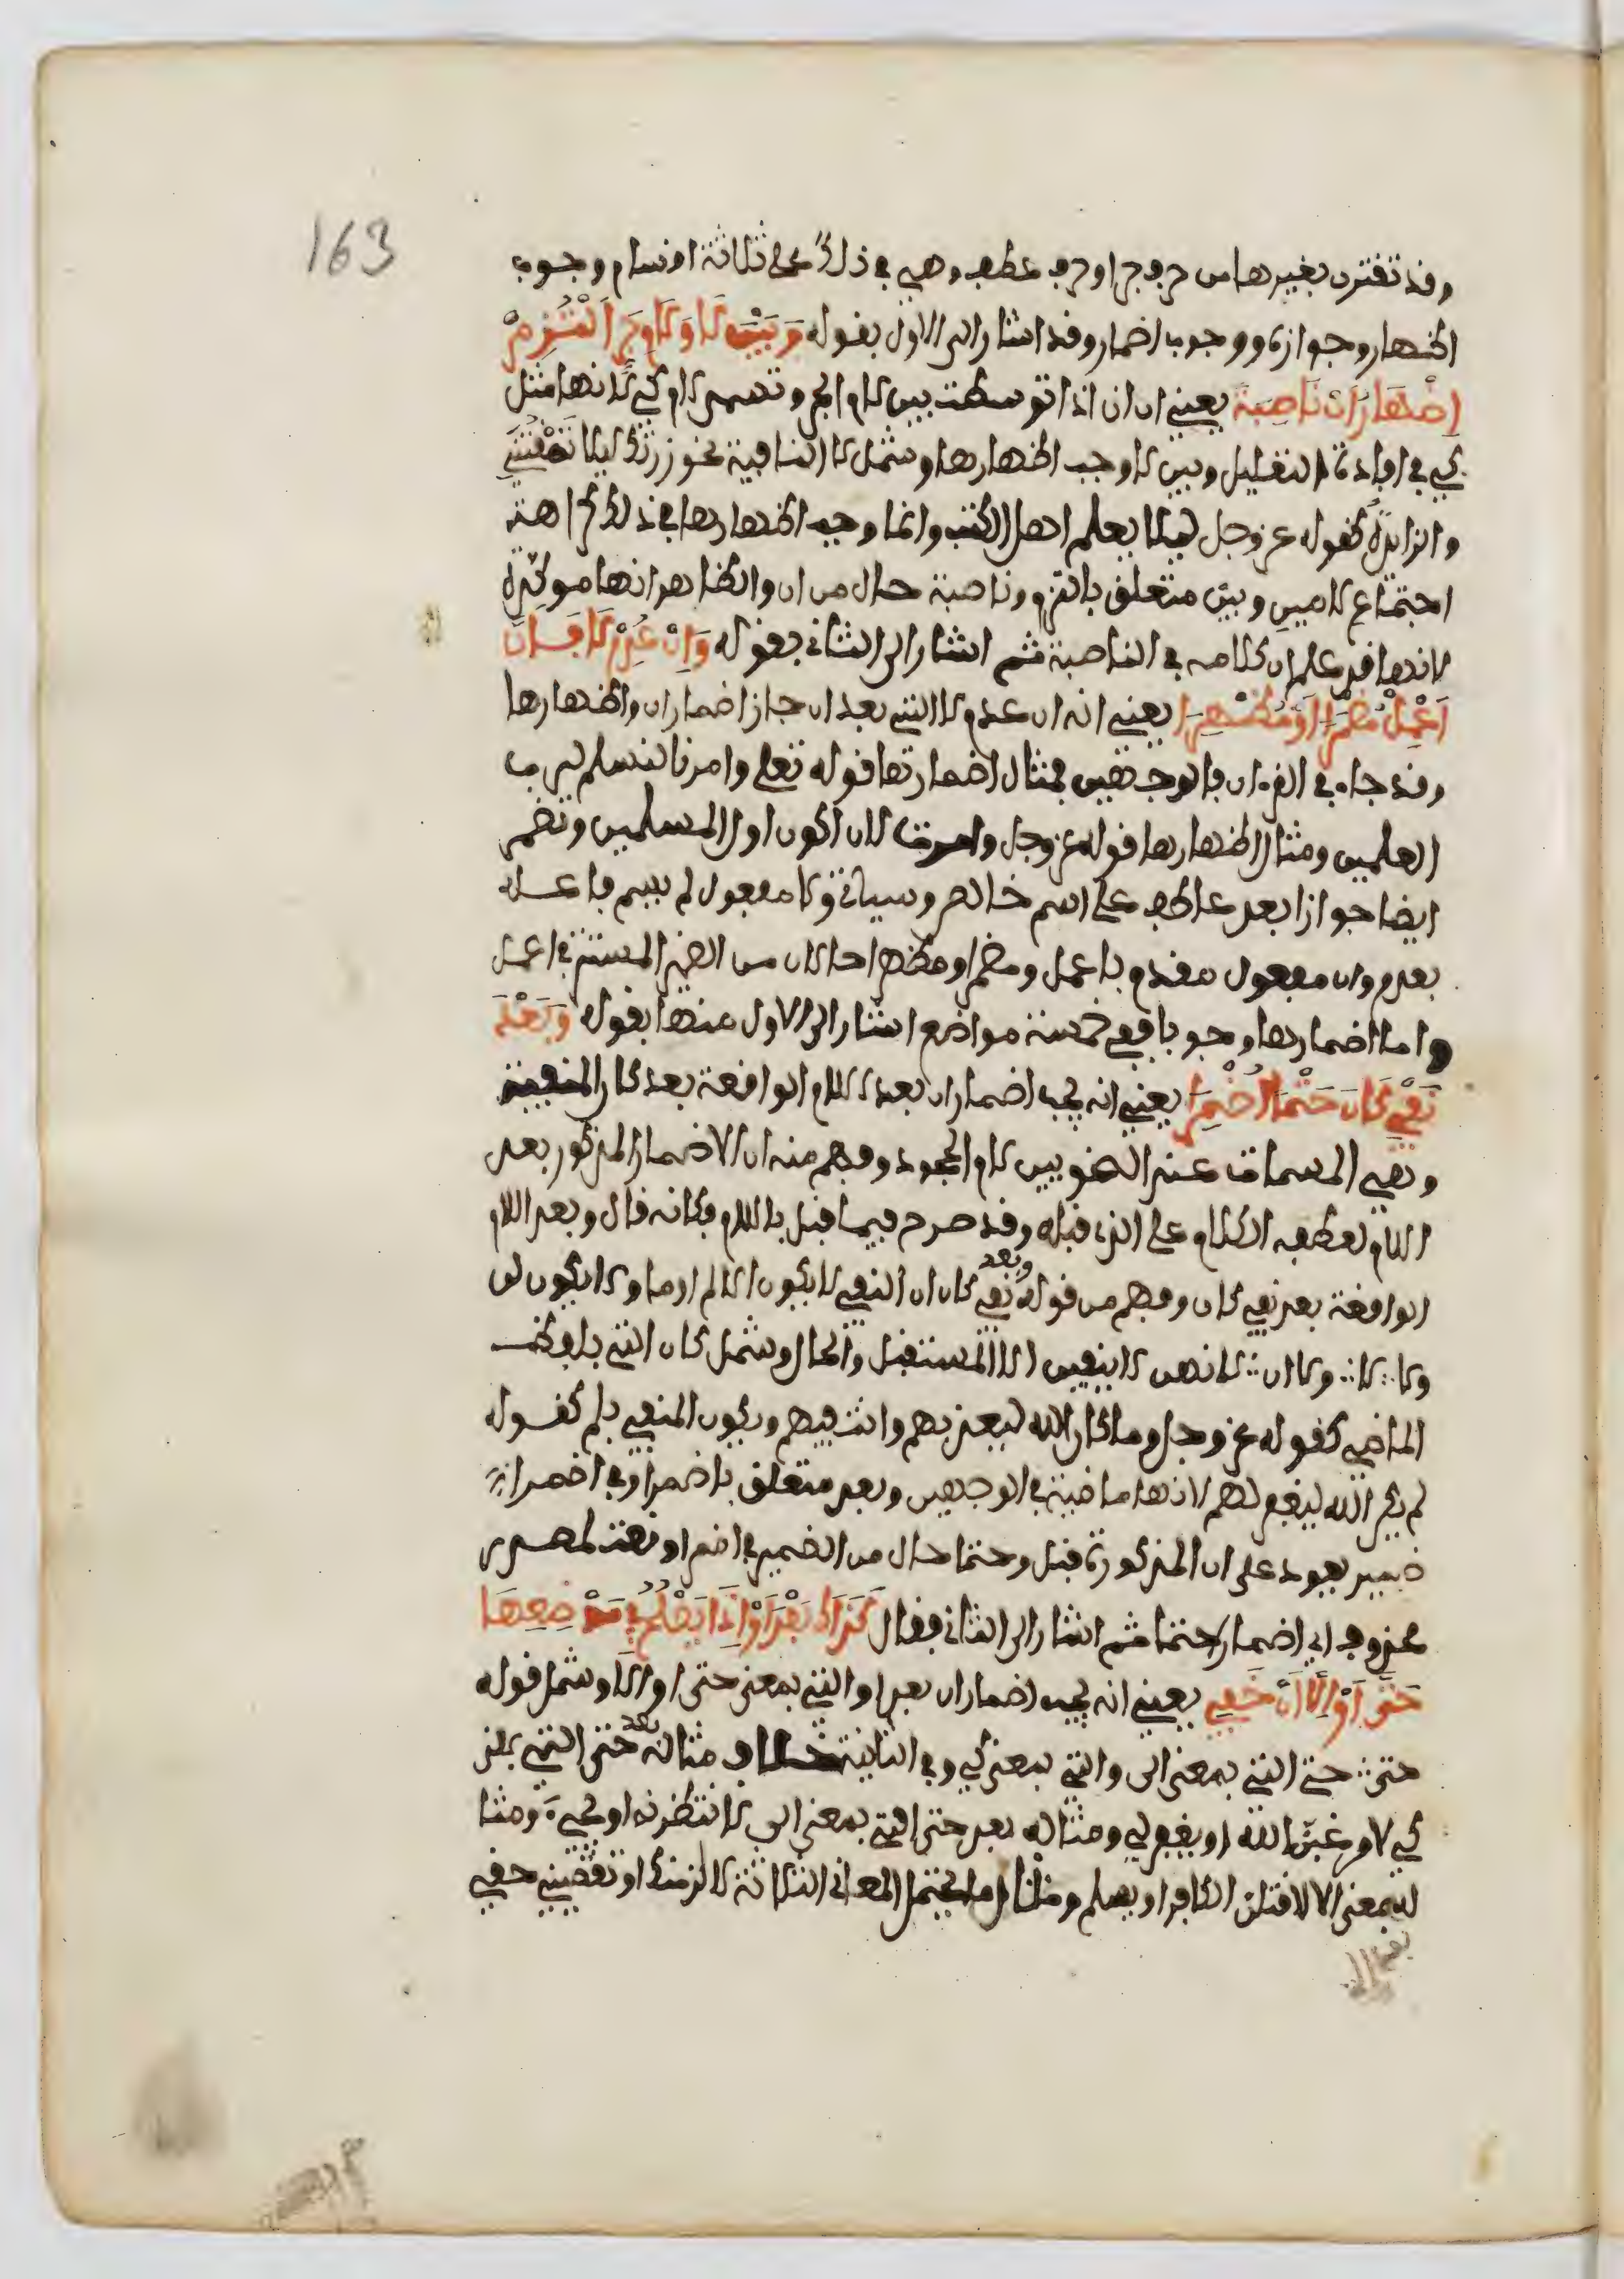 163
وقد تقترن بغيرها من حرف جر او حرف عطف وهي في ذلك على ثلاثة اقسام وجوب
اظهار وجوازه ووجوب اضمار وقد اشار الى الاول بقوله وَبَيْنَ لَا وَلَامِ جَرٍّ الْتُزِمْ
اِظْهَارُ اَنْ نَاصِبَةً يعني ان ان اذا توسطت بين لام الجر وتسمى لام كي لانها مثل
كي في افادة التعليل وبين لا وجب اظهارها وشمل لا النافية نحو زرتك ليلا تمقتني
والزايدة كقوله عز وجل ليلا يعلم اهل الكتب وانما وجب اظهارها في ذلك كراهة
اجتماع لامين وبين متعلق بالتزم وناصبة حال من ان والظاهر انها موكدة
لانها قد علم ان كلامه في الناصبة ثم اشار الى الثاني بقوله وَاِنْ عُدِمْ لَا فَاَنَ
اَعْمِلْ مُضْمِرًا اَوْ مُظْهِرَا يعني انه ان عدم لا التي بعد ان جاز اضمار ان واظهارها
وقد جاء في القرءان بالوجهين فمثال اضمارها قوله تعلى وامرنا لنسلم لرب
العلمين ومثال اظهارها قوله عز وجل وامرت لان اكون اول المسلمين وتضمر
ايضا جوازا بعد عاطف على اسم خالص وسياتي ولا مفعول لم يسم فاعله
بعدم وان مفعول مقدم باعمل ومضمرا ومظهرا حالان من الضمير المستتر في اعمل
واما اضمارها وجوبا ففي خمسة مواضع اشار الى الاول منها بقوله وَبَعْدَ
نَفْيِ كَانَ حَتْمًا اُضْمِرَا يعني انه يجب اضمار ان بعد اللام الواقعة بعد كان المنفية
وهي المسمات عند النحويين لام الجحود وفهم منه ان الاضمار المذكور بعد
اللام لعطفه الكلام على الذي قبله وقد صرح فيما قبل باللام فكانه قال وبعد اللام
الواقعة بعد نفي كان وفهم من قوله وبعد نفي كان ان النفي لا يكون الا لم او ما ولا يكون لن
ولا لا ولا ان لانهن لا ينفين الا المستقبل والحال وشمل كان التي بلفظ
الماضي كقوله عز وجل وما كان الله ليعذبهم وانت فيهم ويكون المنفي بلم كقوله
لم يكن الله ليغفر لهم لانها ماضية في الوجهين وبعد متعلق باضمرا وفي اضمرا
ضمير يعود على ان المذكورة قبل وحتما حال من الضمير في اضمرا او نعت لمصدر
محذوف اي اضمارا حتما ثم اشار الى الثاني فقال كَذَاكَ بَعْدَ اَوْ اِذَا يَصْلُحُ فِي مَوْضِعِهَا
حَتَّى اَوْ اِلَّا اَنْ خَفِي يعني انه يجب اضمار ان بعد او التي بمعنى حتى او الا وشمل قوله
حتى حتى التي بمعنى الى والتي بمعنى كي وفي الثانية مثاله بعد حتى التي بمعنى
كي لارغبن الله او يغفر لي ومثاله بعد حتى التي بمعنى الى لانتظرنه او يجيء ومثا
له بمعنى الا لاقتلن الكافر او يسلم ومثال ما يحتمل المعاني الثلاثة لالزمنك او تقضيني حقي